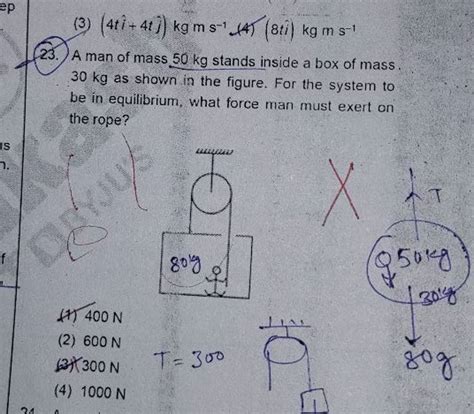 ep
(3) (4tî + 4tĵ) kg m s⁻¹ (4) (8tî) kg m s⁻¹
23. A man of mass 50 kg stands inside a box of mass
30 kg as shown in the figure. For the system to
be in equilibrium, what force man must exert on
the rope?
is
n.
BYJU'S
T
80g
50kg
f
30kg
(1) 400 N
(2) 600 N
(3) 300 N
(4) 1000 N
T = 300
80g